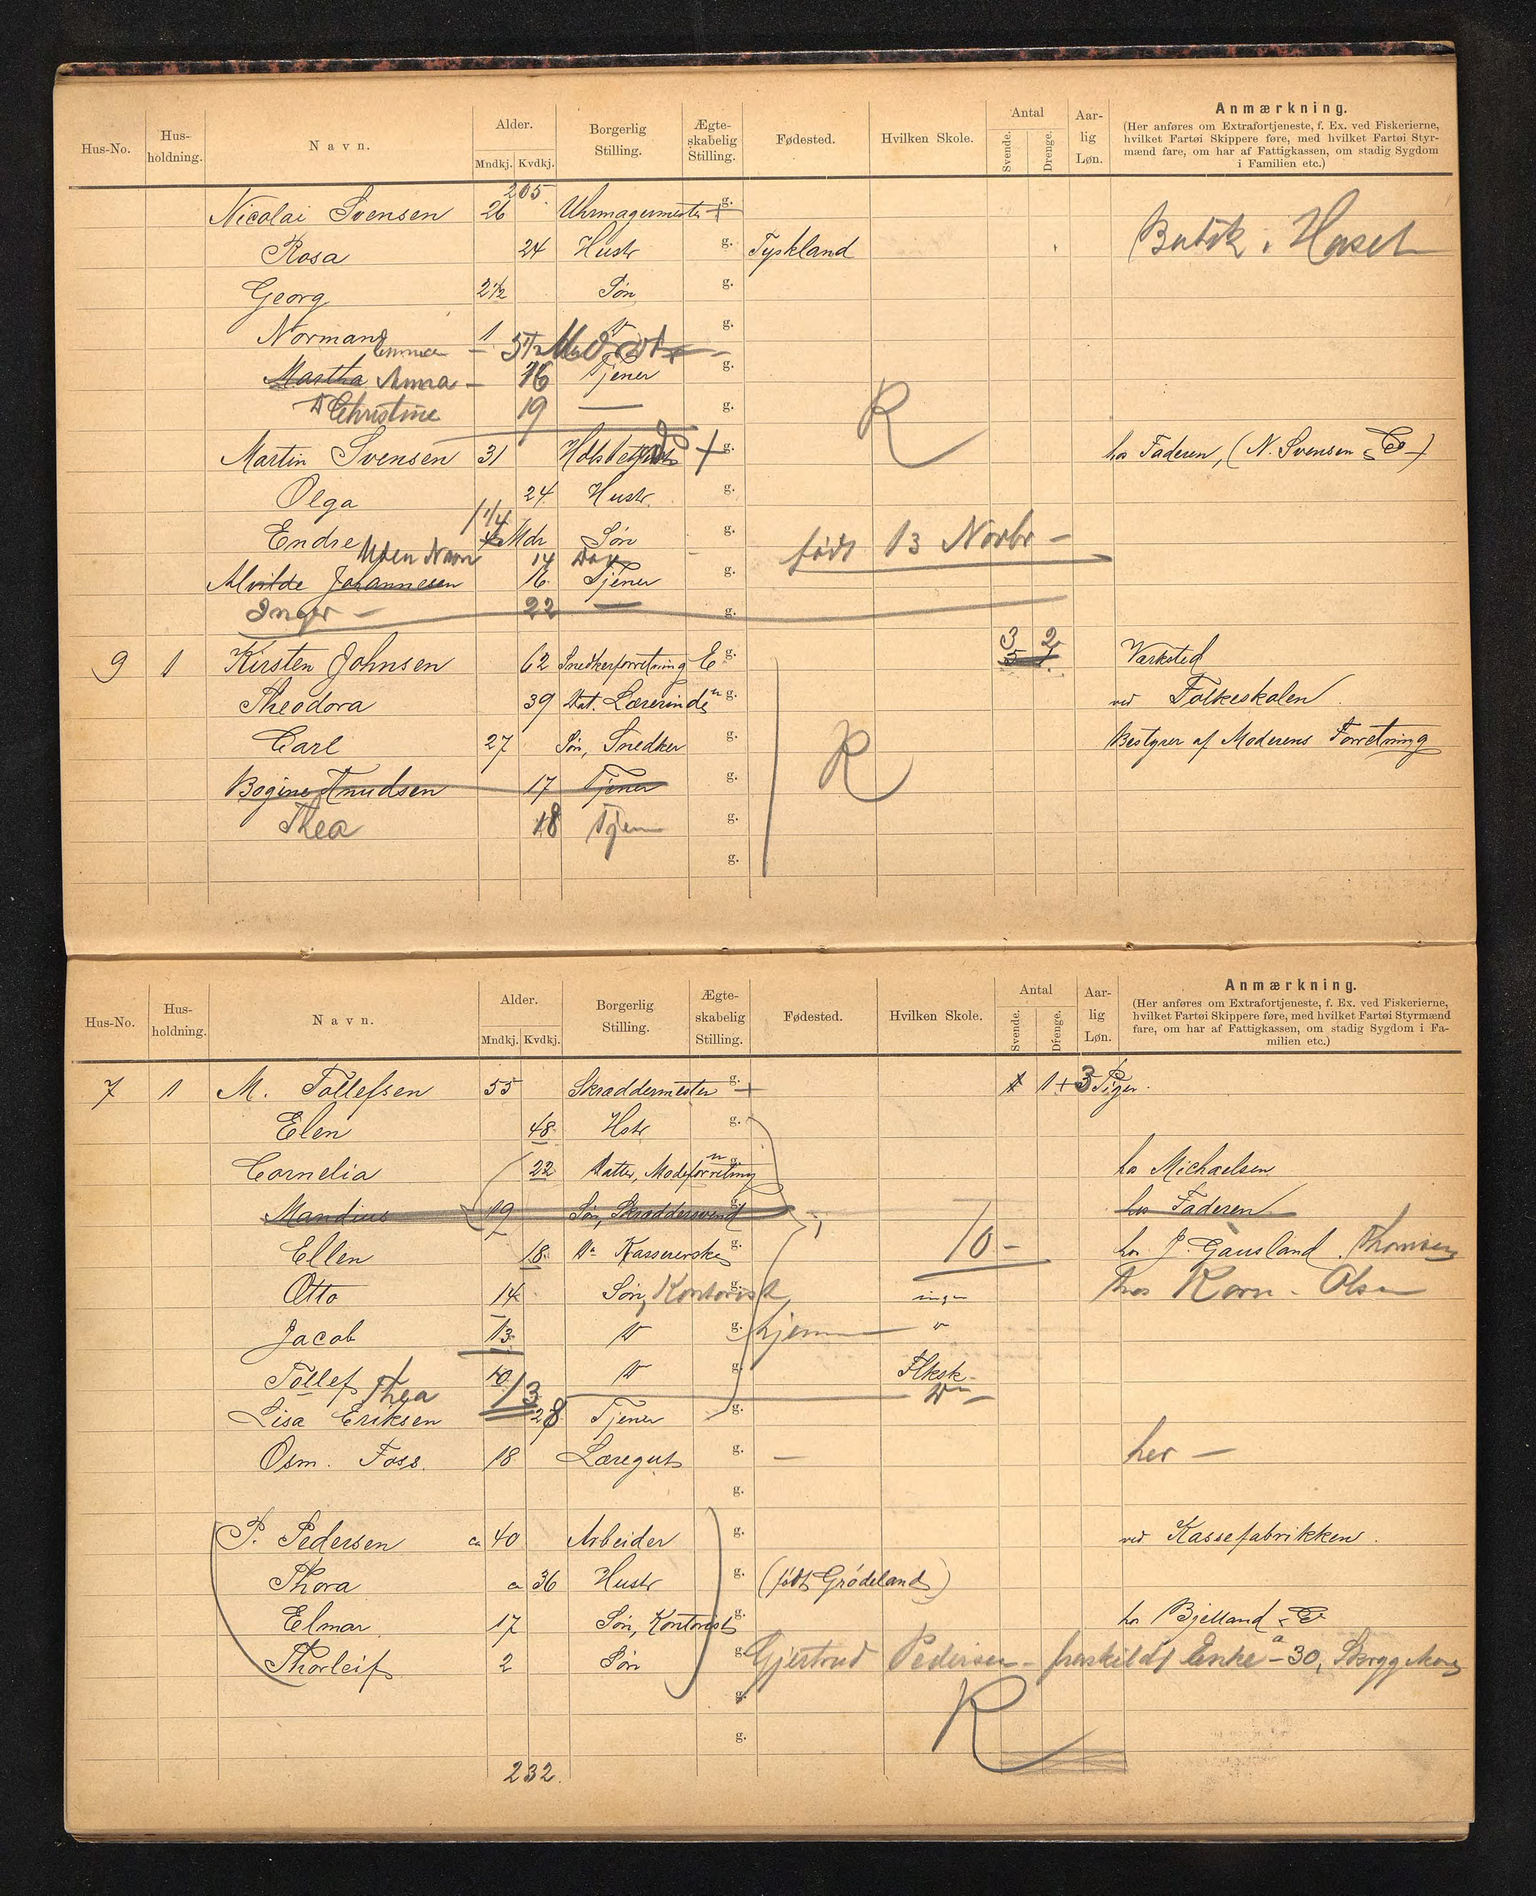 Hus-No. Hus-holdning. Navn. Alder. Mndkj. Kvdkj. Borgerlig Stilling. Ægte-skabelig Stilling. Fødested. Hvilken Skole. Antal Svende. Drenge. Aar-lig Løn. Anmærkning.
(Her anføres om Extrafortjeneste, f. Ex. ved Fiskerierne, hvilket Fartøi Skippere føre, med hvilket Fartøi Styr-mænd fare, om har af Fattigkassen, om stadig Sygdom i Familien etc.)
205
Nicolai Svensen 26 Uhrmagermester + g.
Rosa 24 Hustr g. Tyskland Butik i Huset
Georg 2½ Søn g.
Normann 1 " g.
Emma – 5½
Martha Anna – 16 Tjener g.
" Christine 19 — g. R
Martin Svensen 31 + g. hos Faderen, (N. Svensen & Co)
Olga 24 Hustr. g.
1 1/4
Endre Mdr Søn g. født 13 Novbr –
Uden Navn 14
Alvilde Johannesen 16 Tjener g.
Inger – 22 — g.
9 1 Kirsten Johnsen 62 Snedkerforretning E g. 3 2 5 1 Værksted
Theodora 39 Dat. Lærerinde u g. ved Folkeskolen.
Carl 27 Søn, Snedker g. R Bestyrer af Moderens Forretning
Bogine Knudsen 17 Tjener g.
Thea 18 Tjen g.
g.
Hus-No. Hus-holdning. Navn. Alder. Mndkj. Kvdkj. Borgerlig Stilling. Ægte-skabelig Stilling. Fødested. Hvilken Skole. Antal Svende. Drenge. Aar-lig Løn. Anmærkning.
(Her anføres om Extrafortjeneste, f. Ex. ved Fiskerierne, hvilket Fartøi Skippere føre, med hvilket Fartøi Styrmænd fare, om har af Fattigkassen, om stadig Sygdom i Fa-milien etc.)
7 1 M. Tollefsen 55 Skræddermester + g. 1 1+ 3 Piger.
Elen 48 Hstr g.
Cornelia 22 Datter, Modeforretning u g. hos Michaelsen
Mandius 19 Søn, Skræddersvend g. hos Faderen
Ellen 18 Da Kassererske g. 10 – hos J. Gausland. Thomsen
Otto 14 Søn, Kontorist g. ingen hos Korn. Olsen
Jacob 13 " g. hjemme "
Tollef 10 " g. Flksk.
Thea 13 "
Lisa Eriksen 28 Tjener g.
Osm. Foss. 18 Læregut g. — her —
g.
P. Pedersen ca 40 Arbeider g. ved Kassefabrikken.
Thora ca 36 Hustr g. (født Grødeland)
Elmar 17 Søn, Kontorist g. hos Bjelland & Co
Thorleif 2 Søn g. Gjertrud Pedersen – fraskildt Enke – 30,
g.
g. R
232.